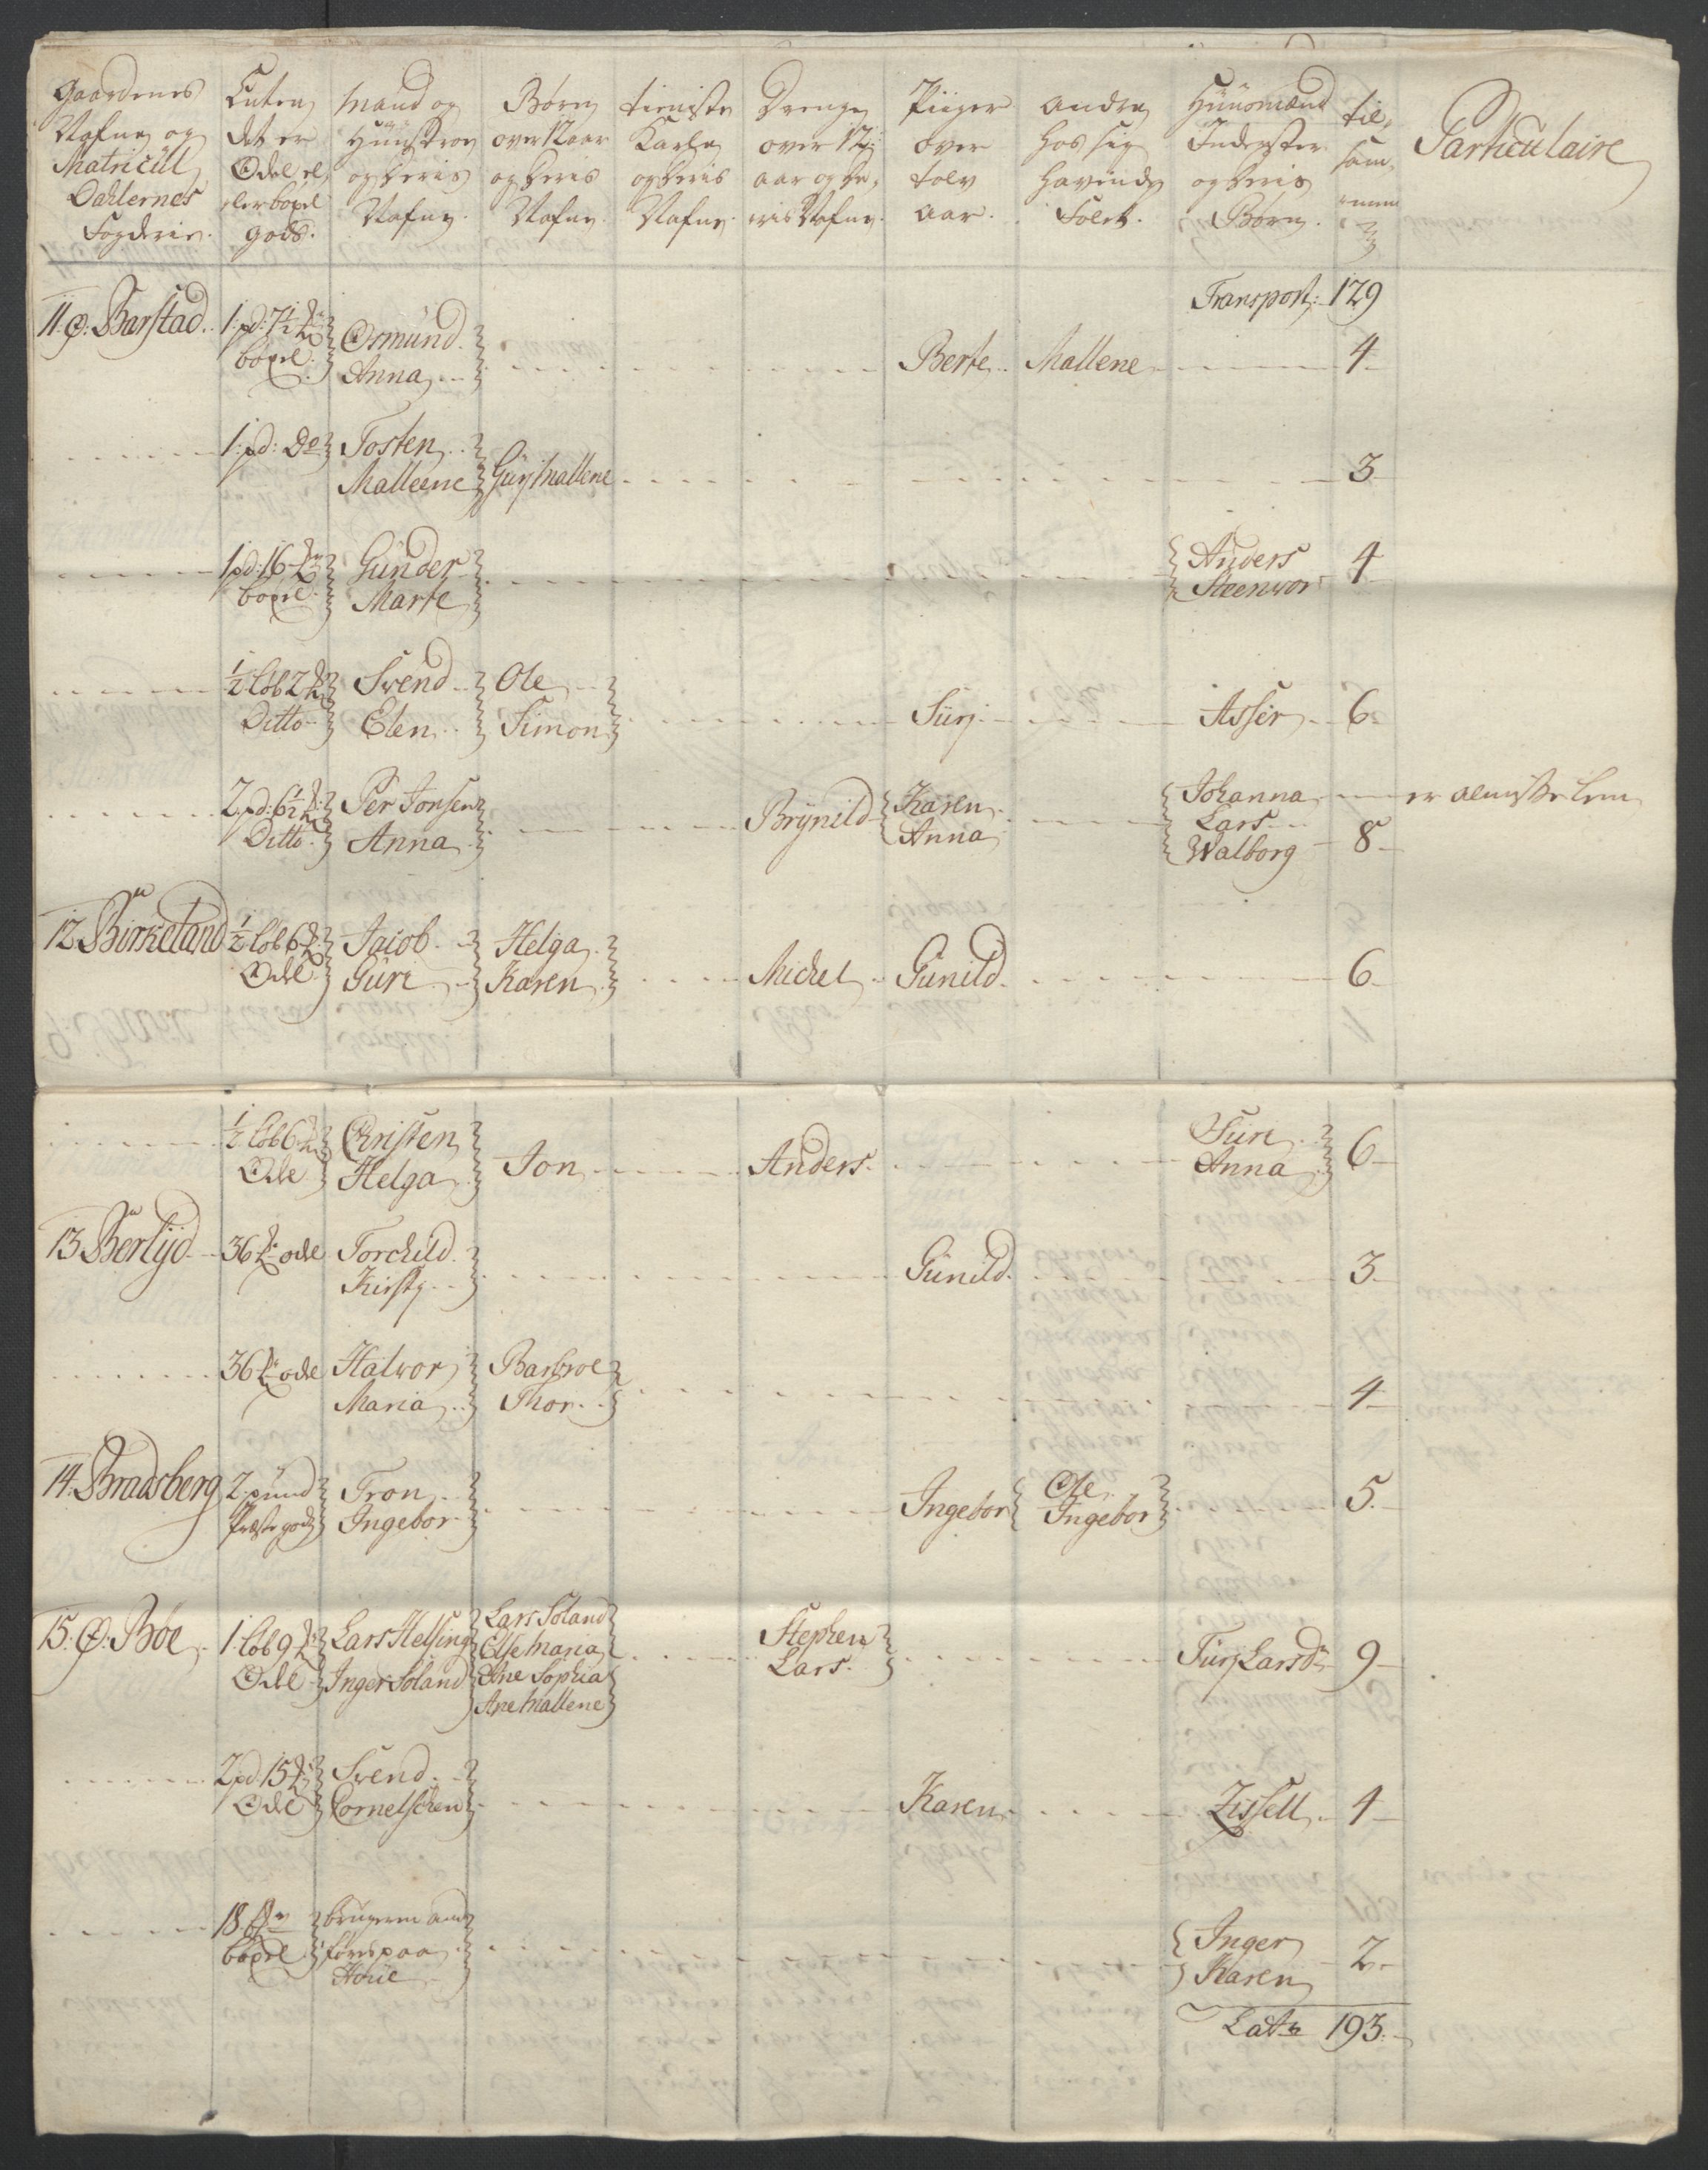 Gaardenes
Nafne og
Matricül
Dahlernes
Fogderie.
det er
Odel el,
ler böxel
gods.
Mand og
Hüüstroe
og deris
Nafne.
Børn
over 12 aar
og deris
Nafne.
tieniste
Karle
og deris
Nafne.
Drenge
over 12
aar og de,
ris Nafne.
Piiger
over
tolv
aar.
Andre
hos sig
havende
Folck.
Hüüsmænd
Inderster
og deris
Børn.
til,
sam,
Particulaire
Transport: 129
11. Ø. Barstad. 1. pd: 7½ böxel. Osmünd. Anna Berte. Mallene 4
1. pd: Do Tosten Malleene Gürj Mallene 3
1 pd: 16 böxel. Günder Marte Anders Steenvor 4
½ löb 2 Ditto Svend Elen Ole Simon Siirj Asser 6
2. pd: 6½ Ditto. Per Jonsen Anna Brÿnild Karen Anna Johanna Lars Walborg 8 er almisse lem
12. Birkeland ½ löb 6 Odel. Jacob Güri Helga Karen Michel Günild 6
½ löb 6 Odel Christen Helga Jon Anders Siiri Anna 6
13. Berlÿd 36 odel Torchild Kirsty Günild 3
36 odel Halvor Maria Barbroe Thor 4
14. Bradsberg 2. pund Præste godz Tron Ingebor Ingebor Ole Ingebor 5
15. Ø. Böe 1. löb 9 Odel Lars Helsing Inger Soland Lars Soland Else Maria Ane Sophia Ane Mallene Stephen Lars Larsd: 9
2 pd: 15 Odel Svend Cornelschen Karen Zissell 4
18 böxel. brugeren and föres paa Inger Karen 2
Lats 193.